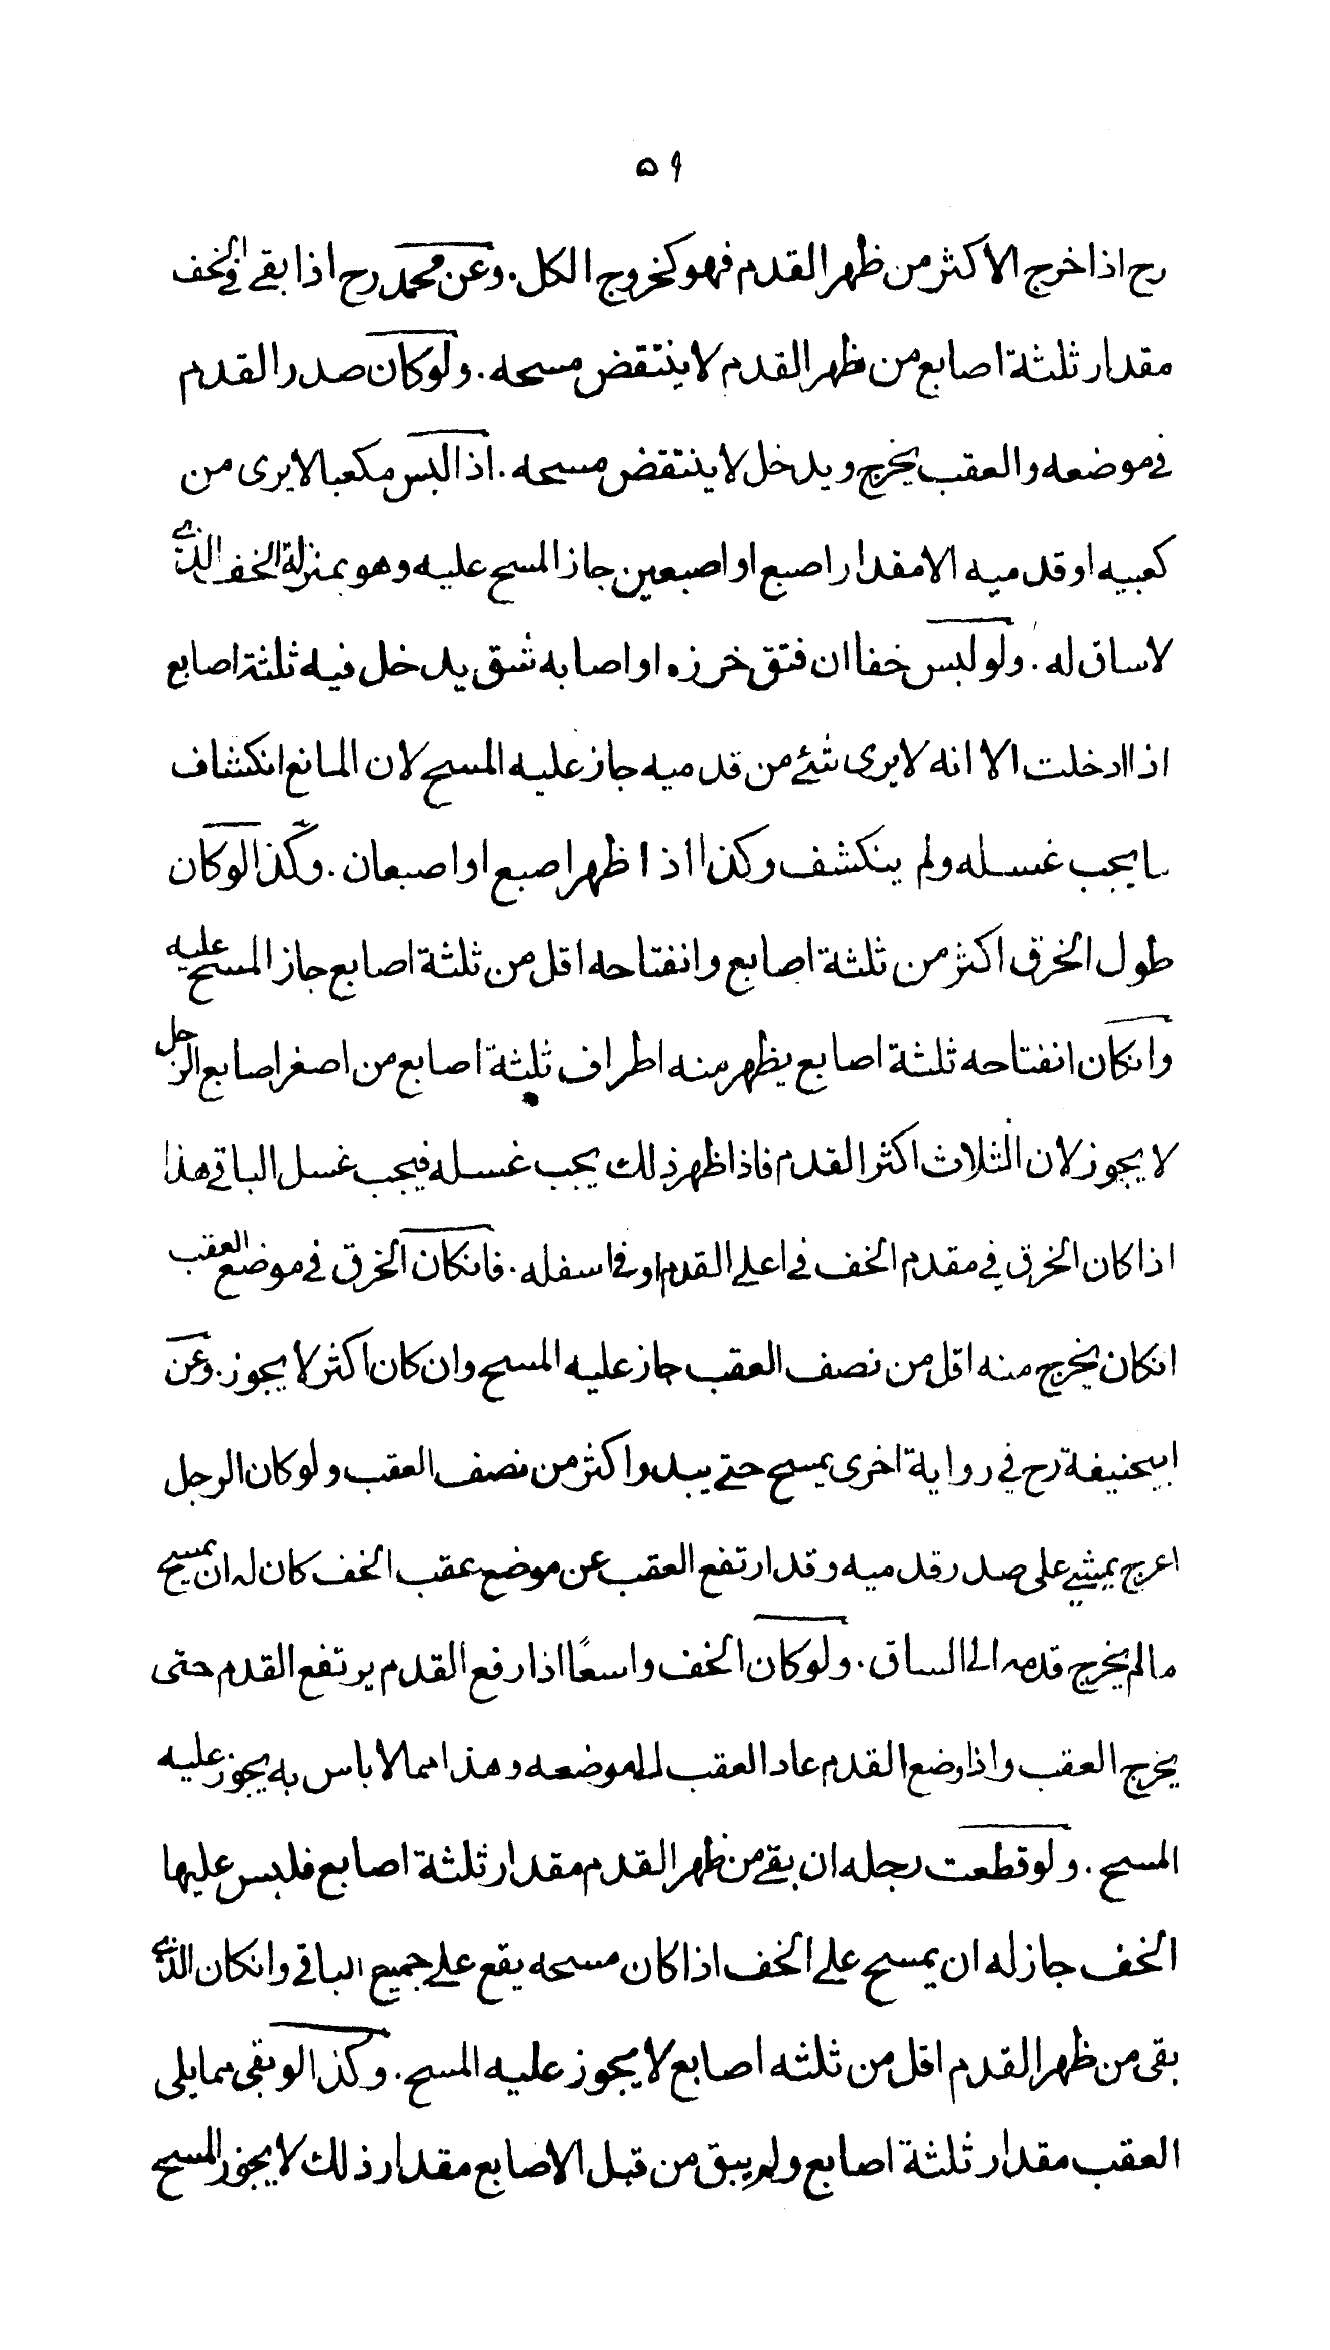 ۵۹
رح اذا خرج الاكثر من ظهر القدم فهو كخروج الكل. وعن محمد رح اذا بقي في الخف
مقدار ثلثة اصابع من ظهر القدم لا ينتقض مسحه. ولوكان صدر القدم
في موضعه والعقب يخرج ويدخل لا ينتقض مسحه. اذا لبس مكعبا لا يرى من
كعبيه او قدميه الا مقدار اصبع او اصبعين جاز المسح عليه وهو بمنزلة الخف الذي
لا ساق له. ولو لبس خفا ان فتق خرزه او اصابه شق يدخل فيه ثلثة اصابع
اذا ادخلت الا انه لا يرى شئ من قدميه جاز عليه المسح لان المانع انكشاف
ما يجب غسله ولم ينكشف وكذا اذا ظهر اصبع او اصبعان. وكذا لوكان
طول الخرق اكثر من ثلثة اصابع وانفتاحه اقل من ثلثة اصابع جاز المسح عليه
وانكان انفتاحه ثلثة اصابع يظهر منه اطراف ثلثة اصابع من اصغر اصابع الرجل
لا يجوز لان الثلاث اكثر القدم فاذا ظهر ذلك يجب غسله فيجب غسل الباقي هذا
اذا كان الخرق في مقدم الخف في اعلى القدم او في اسفله. فانكان الخرق في موضع العقب
انكان يخرج منه اقل من نصف العقب جاز عليه المسح وان كان اكثر لا يجوز. وعن
ابيحنيفة رح في رواية اخرى يمسح حتى يبدو اكثر من نصف العقب ولو كان الرجل
اعرج يمشي على صدر قدميه وقد ارتفع العقب عن موضع عقب الخف كان له ان يمسح
ما لم يخرج قدمه الى الساق. ولوكان الخف واسعًا اذا رفع القدم يرتفع القدم حتى
يخرج العقب واذا وضع القدم عاد العقب الى موضعه وهذا مما لا باس به يجوز عليه
المسح. ولو قطعت رجله ان بقي من ظهر القدم مقدار ثلثة اصابع فلبس عليها
الخف جاز له ان يمسح على الخف اذا كان مسحه يقع على جميع الباقي وانكان الذي
بقى من ظهر القدم اقل من ثلثه اصابع لا يجوز عليه المسح. وكذا لو بقى مما يلى
العقب مقدار ثلثة اصابع ولم يبق من قبل الاصابع مقدار ذلك لا يجوز المسح